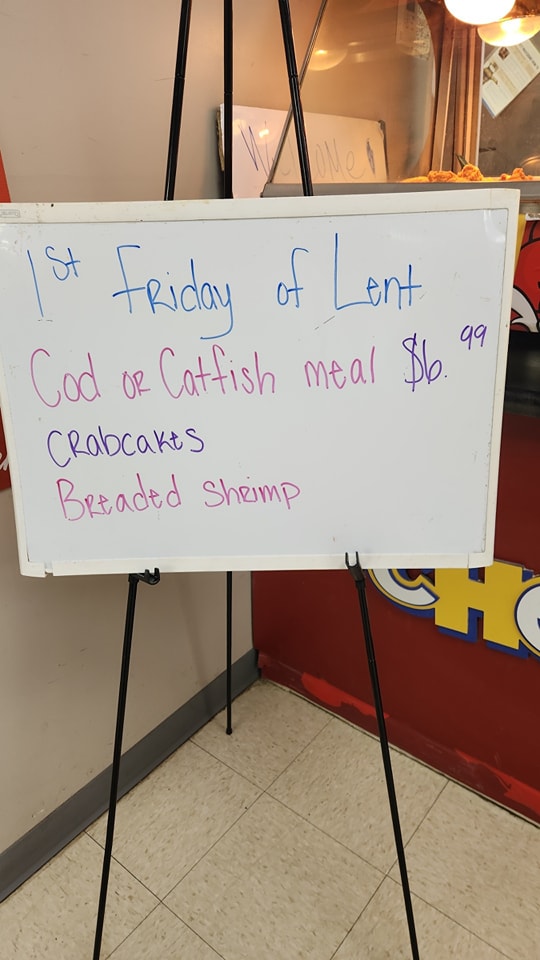 Welcome!
1st Friday of Lent
Cod or Catfish meal $6.99
Crabcakes
Breaded Shrimp
CHe